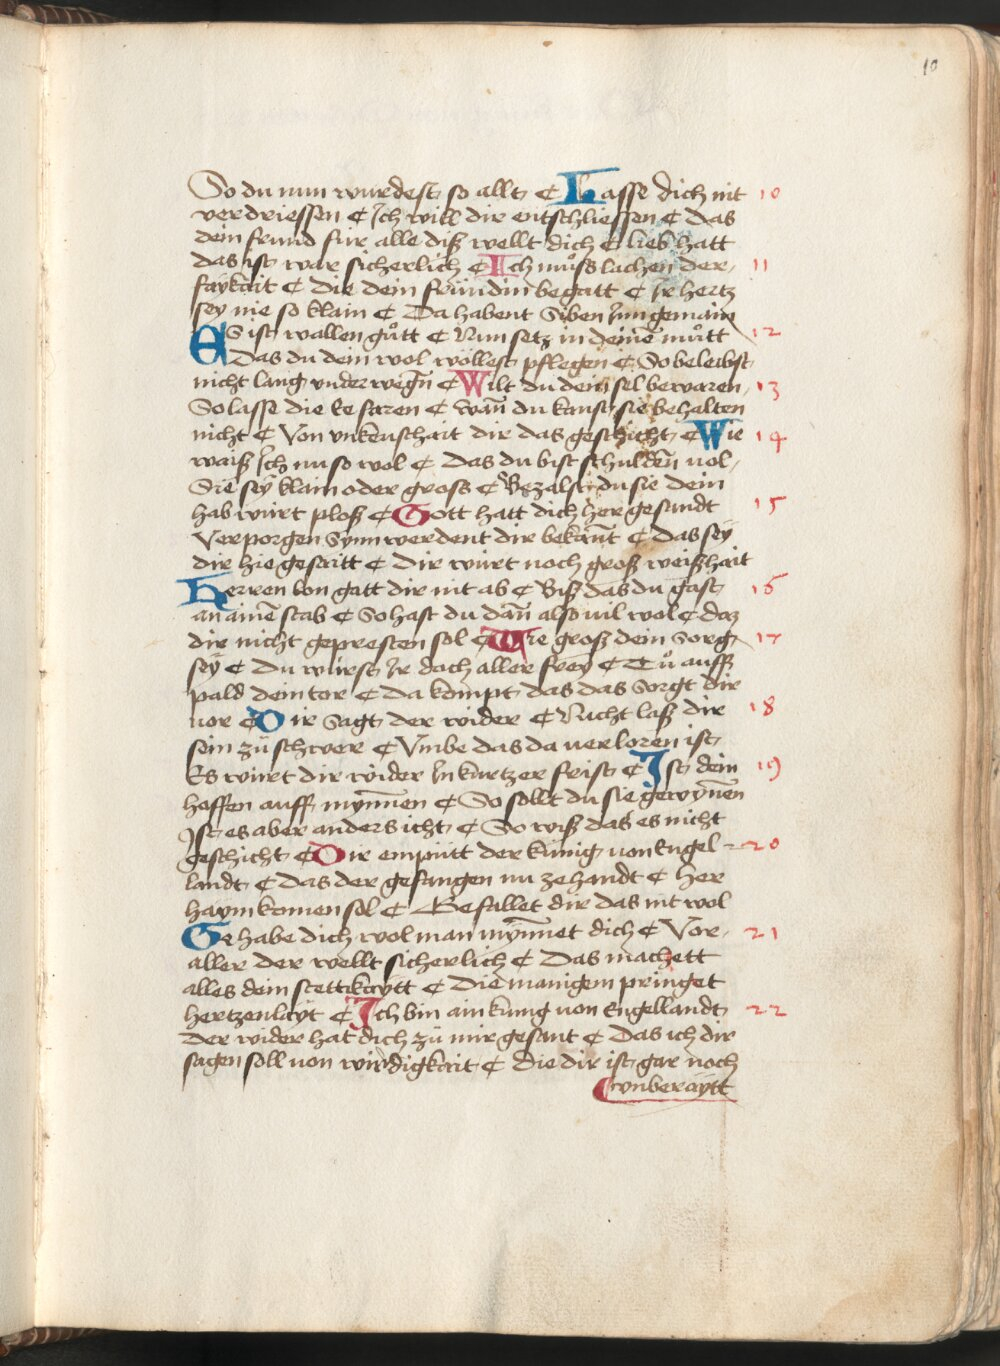 10
So du nun wurdest so allt ¢ Lasse dich nit 10
verdriessen ¢ Ich will dir entschliessen ¢ das
dein frund fur alle diß wellt dich ¢ lieb hatt
das ist war sicherlich ¢ Ich muͦss lachen der 11
faykait ¢ die dein frundin begatt ¢ Ir hertz
sey nie so klain ¢ Da habent Siben Inn gemain
ES ist wallen guͦtt ¢ Nun setz in deinē muͦtt 12
Das du dein wol wöllest pflegen ¢ So beleibst
nicht lang vnder wegn̄ ¢ Wilt du dein sel bewaren 13
So lasse die ke faren ¢ wan̄ du kanst sie behalten
nicht ¢ Von vnkeuschait dir das geschicht ¢ Wie 14
waiß Ich nu so wol ¢ Das du bist schulden̄ uol
Sie seÿ klain oder gross ¢ Bezalst du sie dein
hab wurt ploß ¢ Gott hatt dich her gesandt 15
Verporgen Synn werdent dir bekan̄t ¢ das seÿ
dir hie gesaitt ¢ dir wurt noch groß weißhait
Herren von gatt dir nit ab ¢ Biß das du gast 16
an ainē stab ¢ So hast du dan̄ also uil wol ¢ daz
dir nicht gepresten sol ¢ Wie groß dein Sorg 17
seÿ ¢ Du wurst Ir doch aller freÿ ¢ Tuͦ auff
pald dein tor ¢ Da kompt das das Sorgt dir
uor ¢ Dir Sagt der wider ¢ Nicht laß dir 18
sein zu schwer ¢ Vmbe das da uerloren ist
Es wurt dir wider In kurtzer frist ¢ Ist dein 19
hoffen auff mynnen ¢ So sollt du sie gewynnen
Ist es aber anders icht ¢ So wiß das es nicht
geschicht ¢ Dir empiitt der kunig uon Engel 20
landt ¢ Das der gefangen nu zehandt ¢ Her
haym komen sol ¢ Gefallet dir das nit wol
Gehabe dich wol man mynnet dich ¢ Vor 21
aller der wellt sicherlich ¢ Das machett
alles dein stettikaytt ¢ Die manigem pringet
hertzenlayt ¢ Ich bin ain kunig von Engellandt 22
Der wider hat dich zu mir gesant ¢ Das ich dir
sagen soll uon wirdigkait ¢ Die dir ist gar noch
vnberaytt